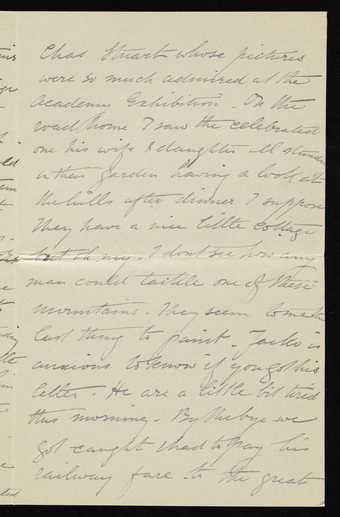 Chas Stuart whose pictures
were so much admired at the
Academy Exhibition. On the
road home I saw the celebrated
one his wife & daughter all standing
in their garden having a look at
the hills after dinner I suppose
They have a nice little cottage
but oh my. I dont see how any
man could tackle one of these
mountains. They seem to make
last thing to paint. Jacko is
anxious to know if you got his
letter. He are a little bit tired
this morning. By the bye we
got caught & had to pay his
railway fare. to the great